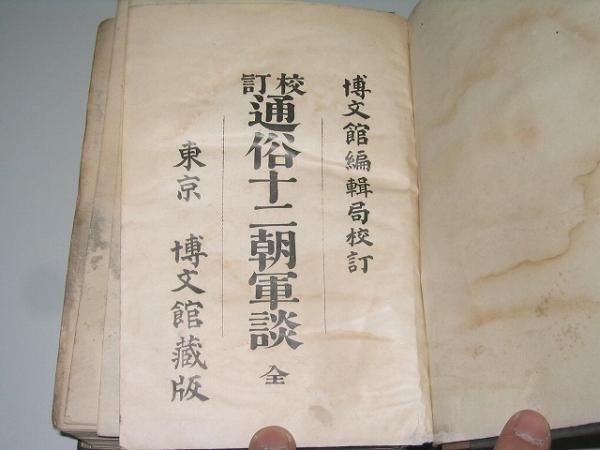 博文館編輯局校訂
校訂通俗十二朝軍談 全
東京 博文館藏版